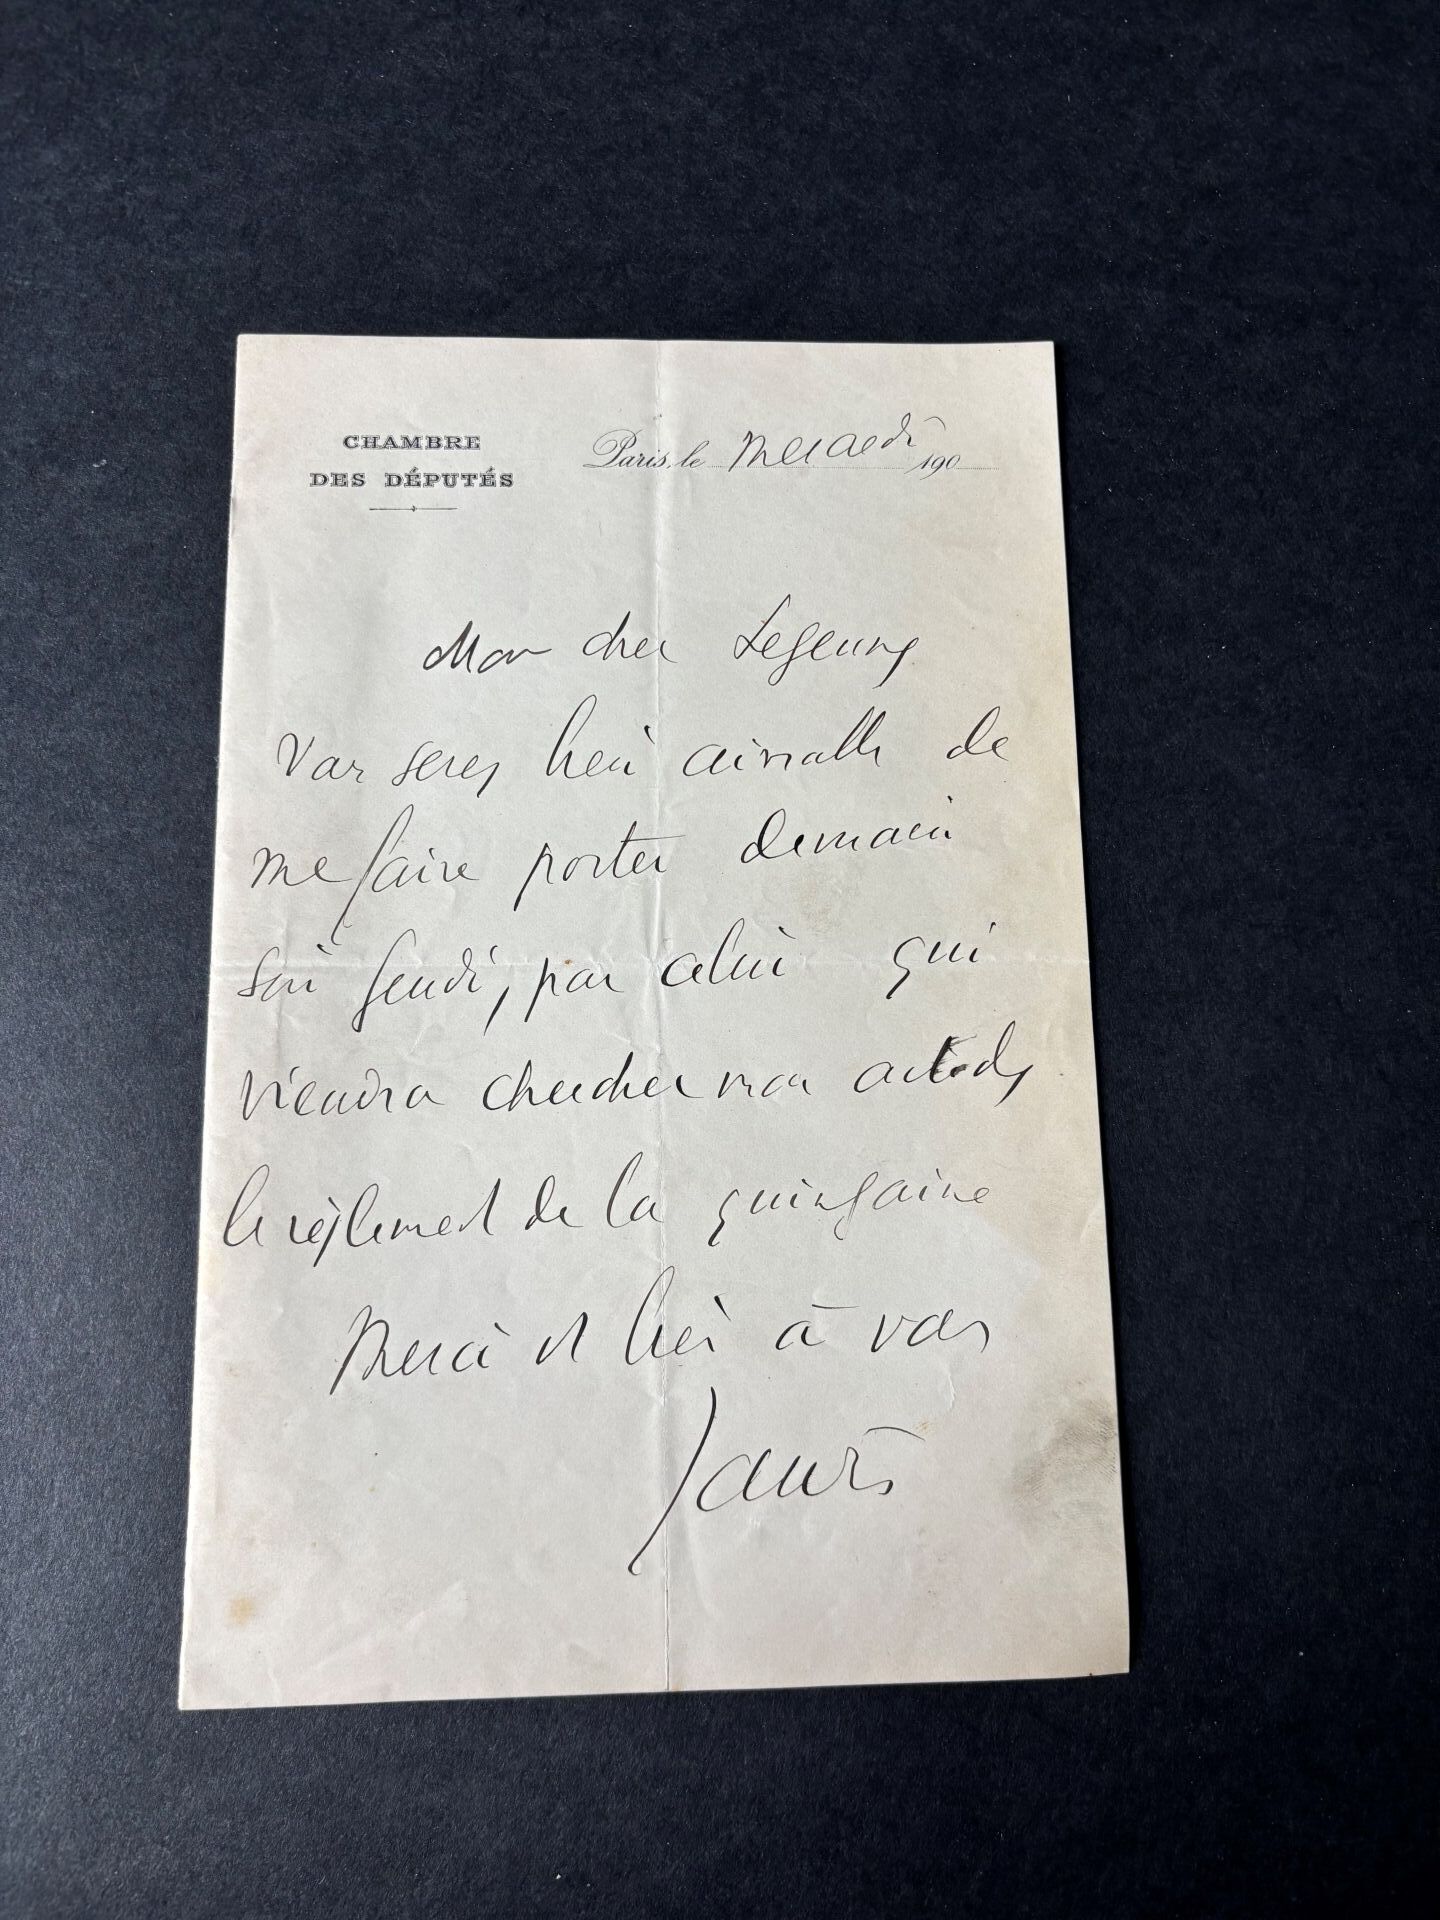 CHAMBRE
DES DÉPUTÉS
Paris, le Mercredi 190
Mon cher
Vous serez bien aimable de
me faire porter demain
soir jeudi, par celui qui
viendra chercher mon article,
le règlement de la quinzaine
Merci et bien à vous
Jaurès